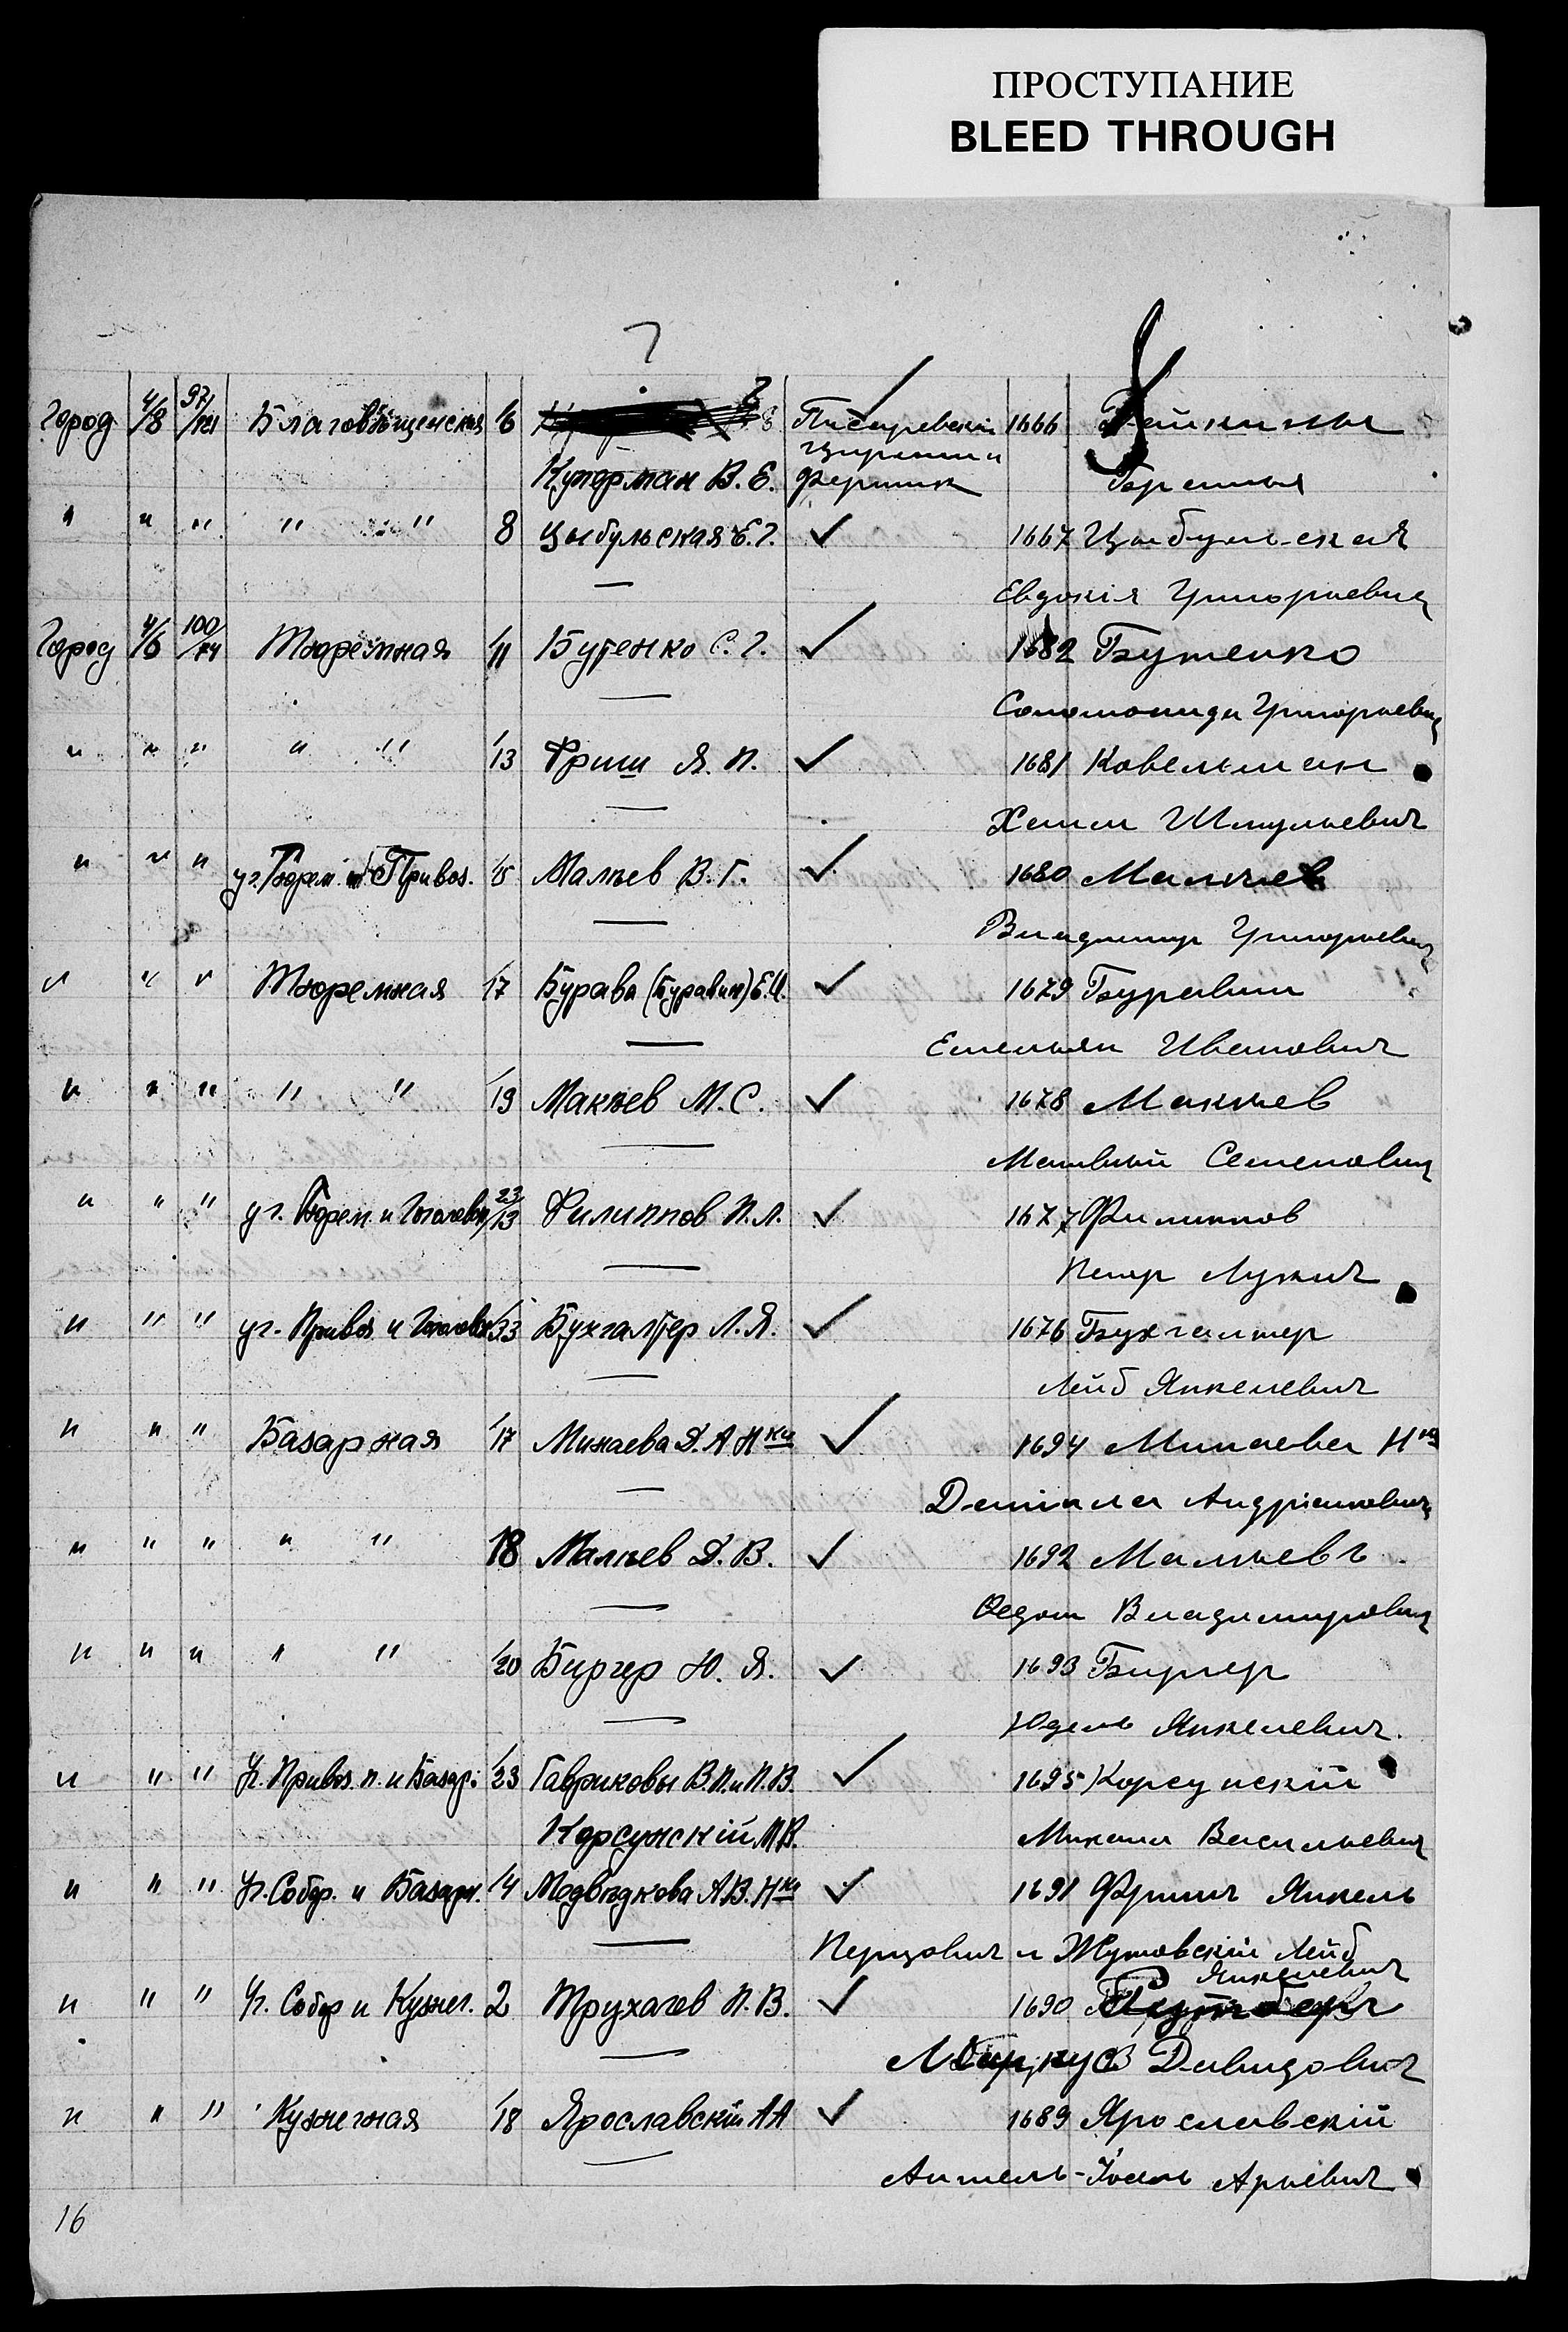 ПРОСТУПАНИЕ
BLEED THROUGH
?
Город 4/8 97/121 Благовѣщенская 6 Писаревскій 1666
Куперман В. Е.
" " " " " 8 Цыбульская Е. Г. ✓ 1667 Цыбульская
— Евдокія Григорьевна
Город 4/6 100/74 Тюремная 11 Бутенко С. Г. ✓ 1682 Бутенко
— Соломонида Григорьевна
" " " " " 13 Фриш Я. П. ✓ 1681 Ковельман
— Хаим Шмульевич
" " " уг. Тюрем. и Привоз. 15 Малѣев В. Г. ✓ 1680 Малѣев
— Владимир Григорьевич
" " " Тюремная 17 Бурава (Буравин) Е. И. ✓ 1679 Буравин
— Емельян Иванович
" " " " " 19 Макѣев М. С. ✓ 1678 Макѣев
— Матвѣй Семенович
" " " уг. Тюрем. и Гоголевск. 23/13 Филиппов П. Л. ✓ 1677 Филиппов
— Петр Лукич
" " " уг. Привоз. и Гоголевск. 33 Бухгалтер Л. Я. ✓ 1676 Бухгалтер
— Лейб Янкелевич
" " " Базарная 17 Минаева Д. А. Нки ✓ 1694 Минаева Нки
— Даниила Андріановича
" " " " " 18 Малѣев Ф. В. ✓ 1692 Малѣевъ
— Федот Владимирович
" " " " " 20 Биргер Ю. Я. ✓ 1693 Биргер
— Юдель Янкелевич.
" " " Уг. Привоз. п. и Базар. 23 Гавриковы В. П. и П. В. ✓ 1695 Корсунскій
Корсунскій М. В. Михаил Васильевич
" " " Уг. Собор. и Базарн. 14 Медвѣдкова А. В. Нки ✓ 1691 Фриш Янкель
— Перцович и Жутовскій Лейб
Янкелевич
" " " Уг. Собор и Кузнеч. 2 Трухачев П. В. ✓ 1690
— Маркус Давидович
" " " Кузнечная 18 Ярославскій А А ✓ 1689 Ярославскій
— Аншель-Іоель Арьевич
16